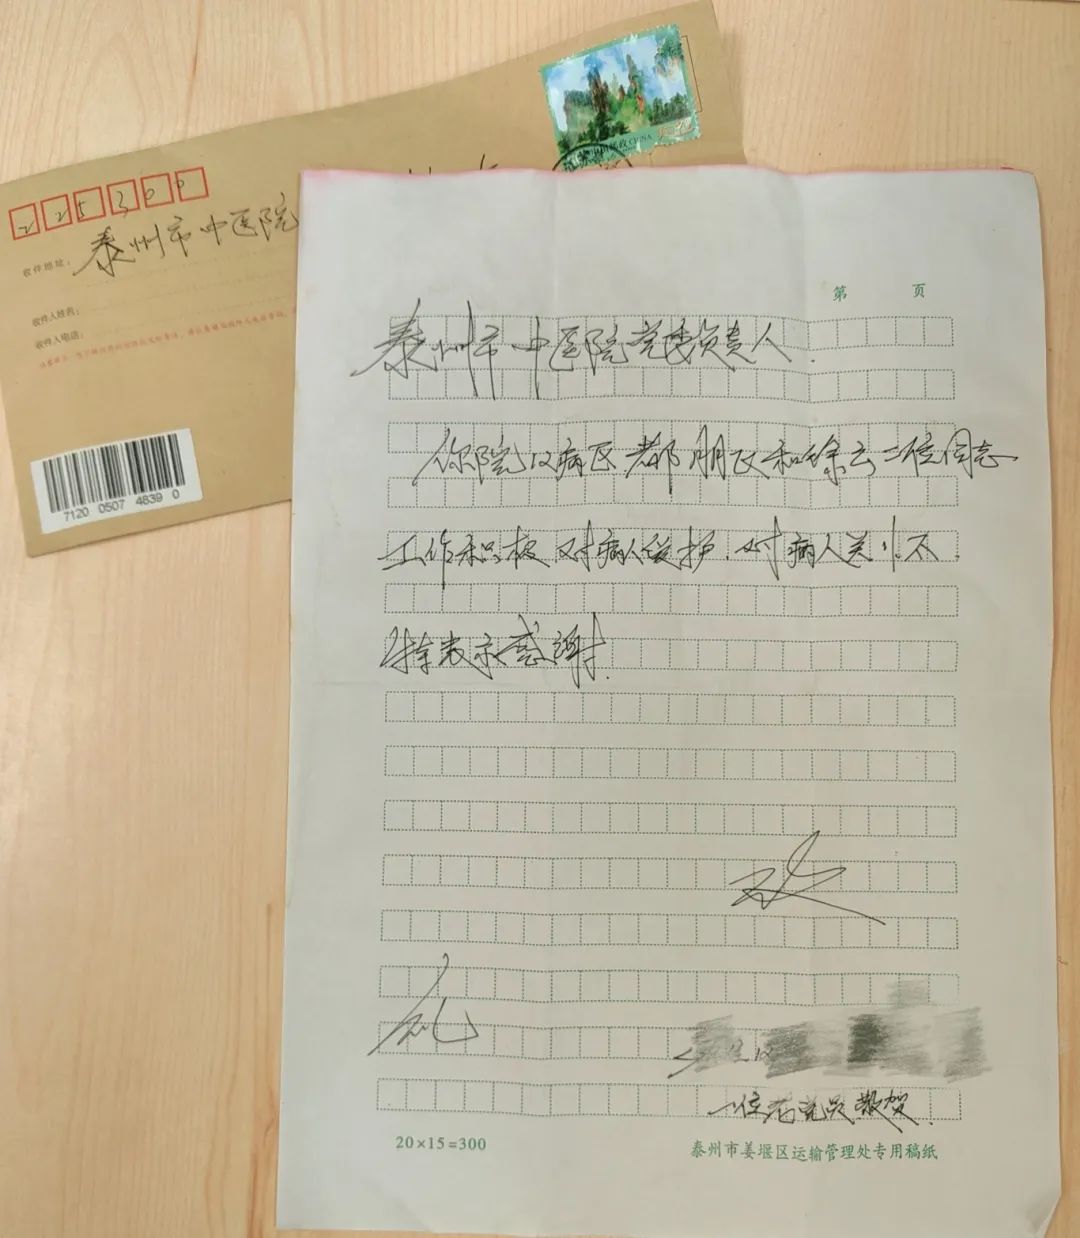 225300
收件地址：泰州市中医院
收件人姓名：
收件人电话：
7120 0507 4839 0
中国邮政 CHINA
第 页
泰州市中医院党委负责人.
你院12病区都朋和徐云二位同志
工作积极 对病人爱护.对病人关怀
表示感谢.
致
礼
一位老党员敬贺.
20×15=300
泰州市姜堰区运输管理处专用稿纸